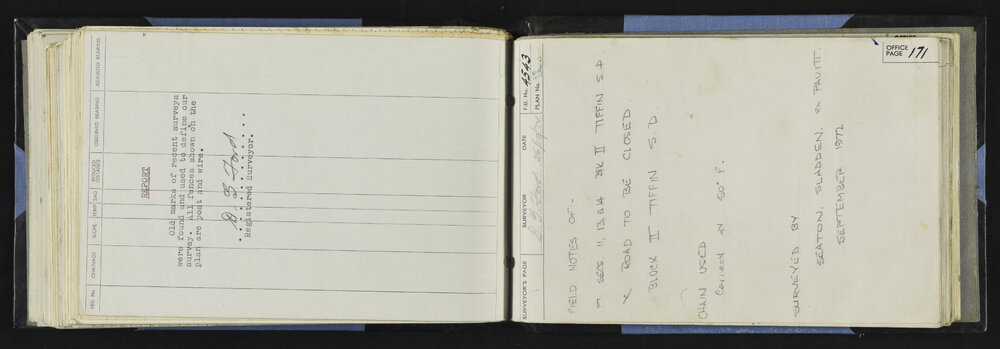 PEG No. CHAINAGE SLOPE TEMP SAG REDUCED DISTANCE OBSERVED BEARING ADJUSTED BEARING
REPORT
Old marks of recent surveys
were found and used to define our
survey. All fences shown on the
plan are post and wire.
D. B. Ford
Registered Surveyor.
OFFICE PAGE 171
SURVEYOR'S PAGE SURVEYOR DATE F.B. No. 4543
PLAN No.
FIELD NOTES OF:-
SECS 11, 13, & 14 BLK II TIFFIN S.D
ROAD TO BE CLOSED
BLOCK II TIFFIN S.D.
CHAIN USED
Correct at 50° F.
SURVEYED BY
SEATON, SLADDEN, & PAVITT.
SEPTEMBER 1972